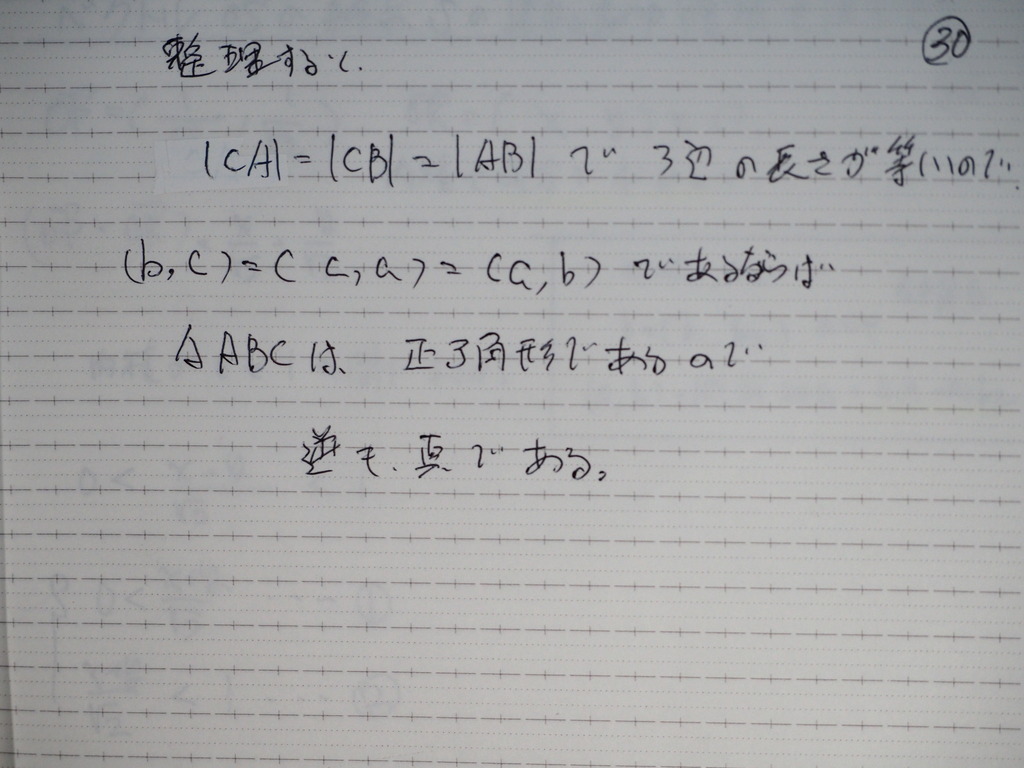 ㉚
整理すると.
|CA| = |CB| = |AB| で 3辺の長さが等しいので.
(b, c) = (c, a) = (a, b) であるならば
△ABCは、正3角形であるので
逆も、真である。